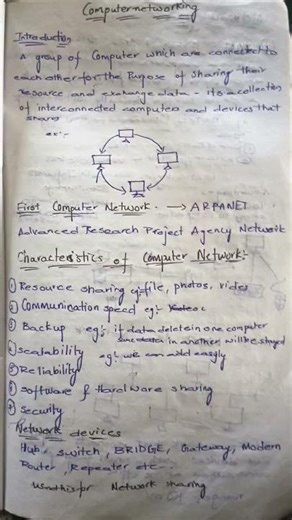 Computer networking
Introduction
A group of Computer which are connected to
each other for the Purpose of sharing their
resource and exchange data - Its a collection
of interconnected computer and devices that
share
ex:-
First Computer Network. → ARPANET
Advanced Research Project Agency Network
Characteristics of Computer Network:-
① Resource sharing eg:-file, photos, video
② Communication speed eg:-
③ Backup eg:- if data delete in one computer
data in another will be stayed
④ scalability eg:- we can add easyly
⑤ Reliability
⑥ Software & Hardware sharing
⑦ Security
Network devices
Hub, switch, BRIDGE, Gateway, Modem
Router, Repeater etc -
Network sharing